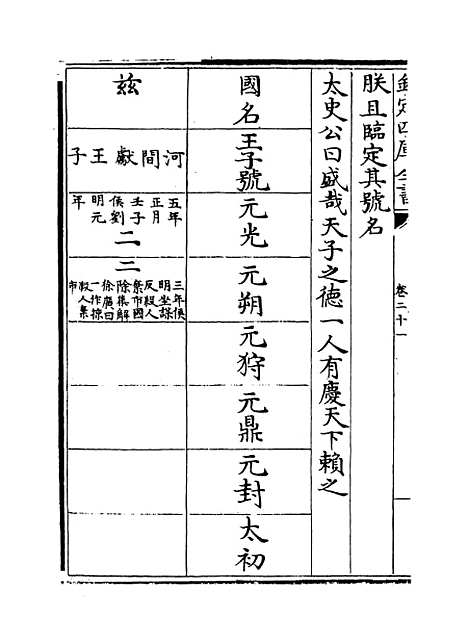 欽定四庫全書
卷二十一
朕且臨定其號名
太史公曰盛哉天子之德一人有慶天下賴之
國名
王子號
元光
元朔
元狩
元鼎
元封
太初
茲
河間獻王子
五年
正月
壬子
侯劉
明元
年
二
二
三年侯
明坐謀
反殺人
棄市國
除集解
徐廣曰
一作掠
殺人棄
市